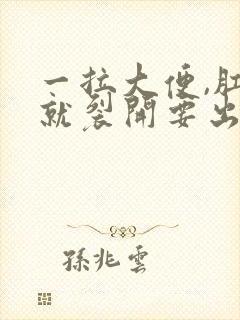 一拉大便,肛
就裂開要出
孫兆雲